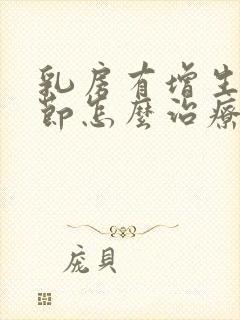 乳房有增生
節怎麼治療
庞貝